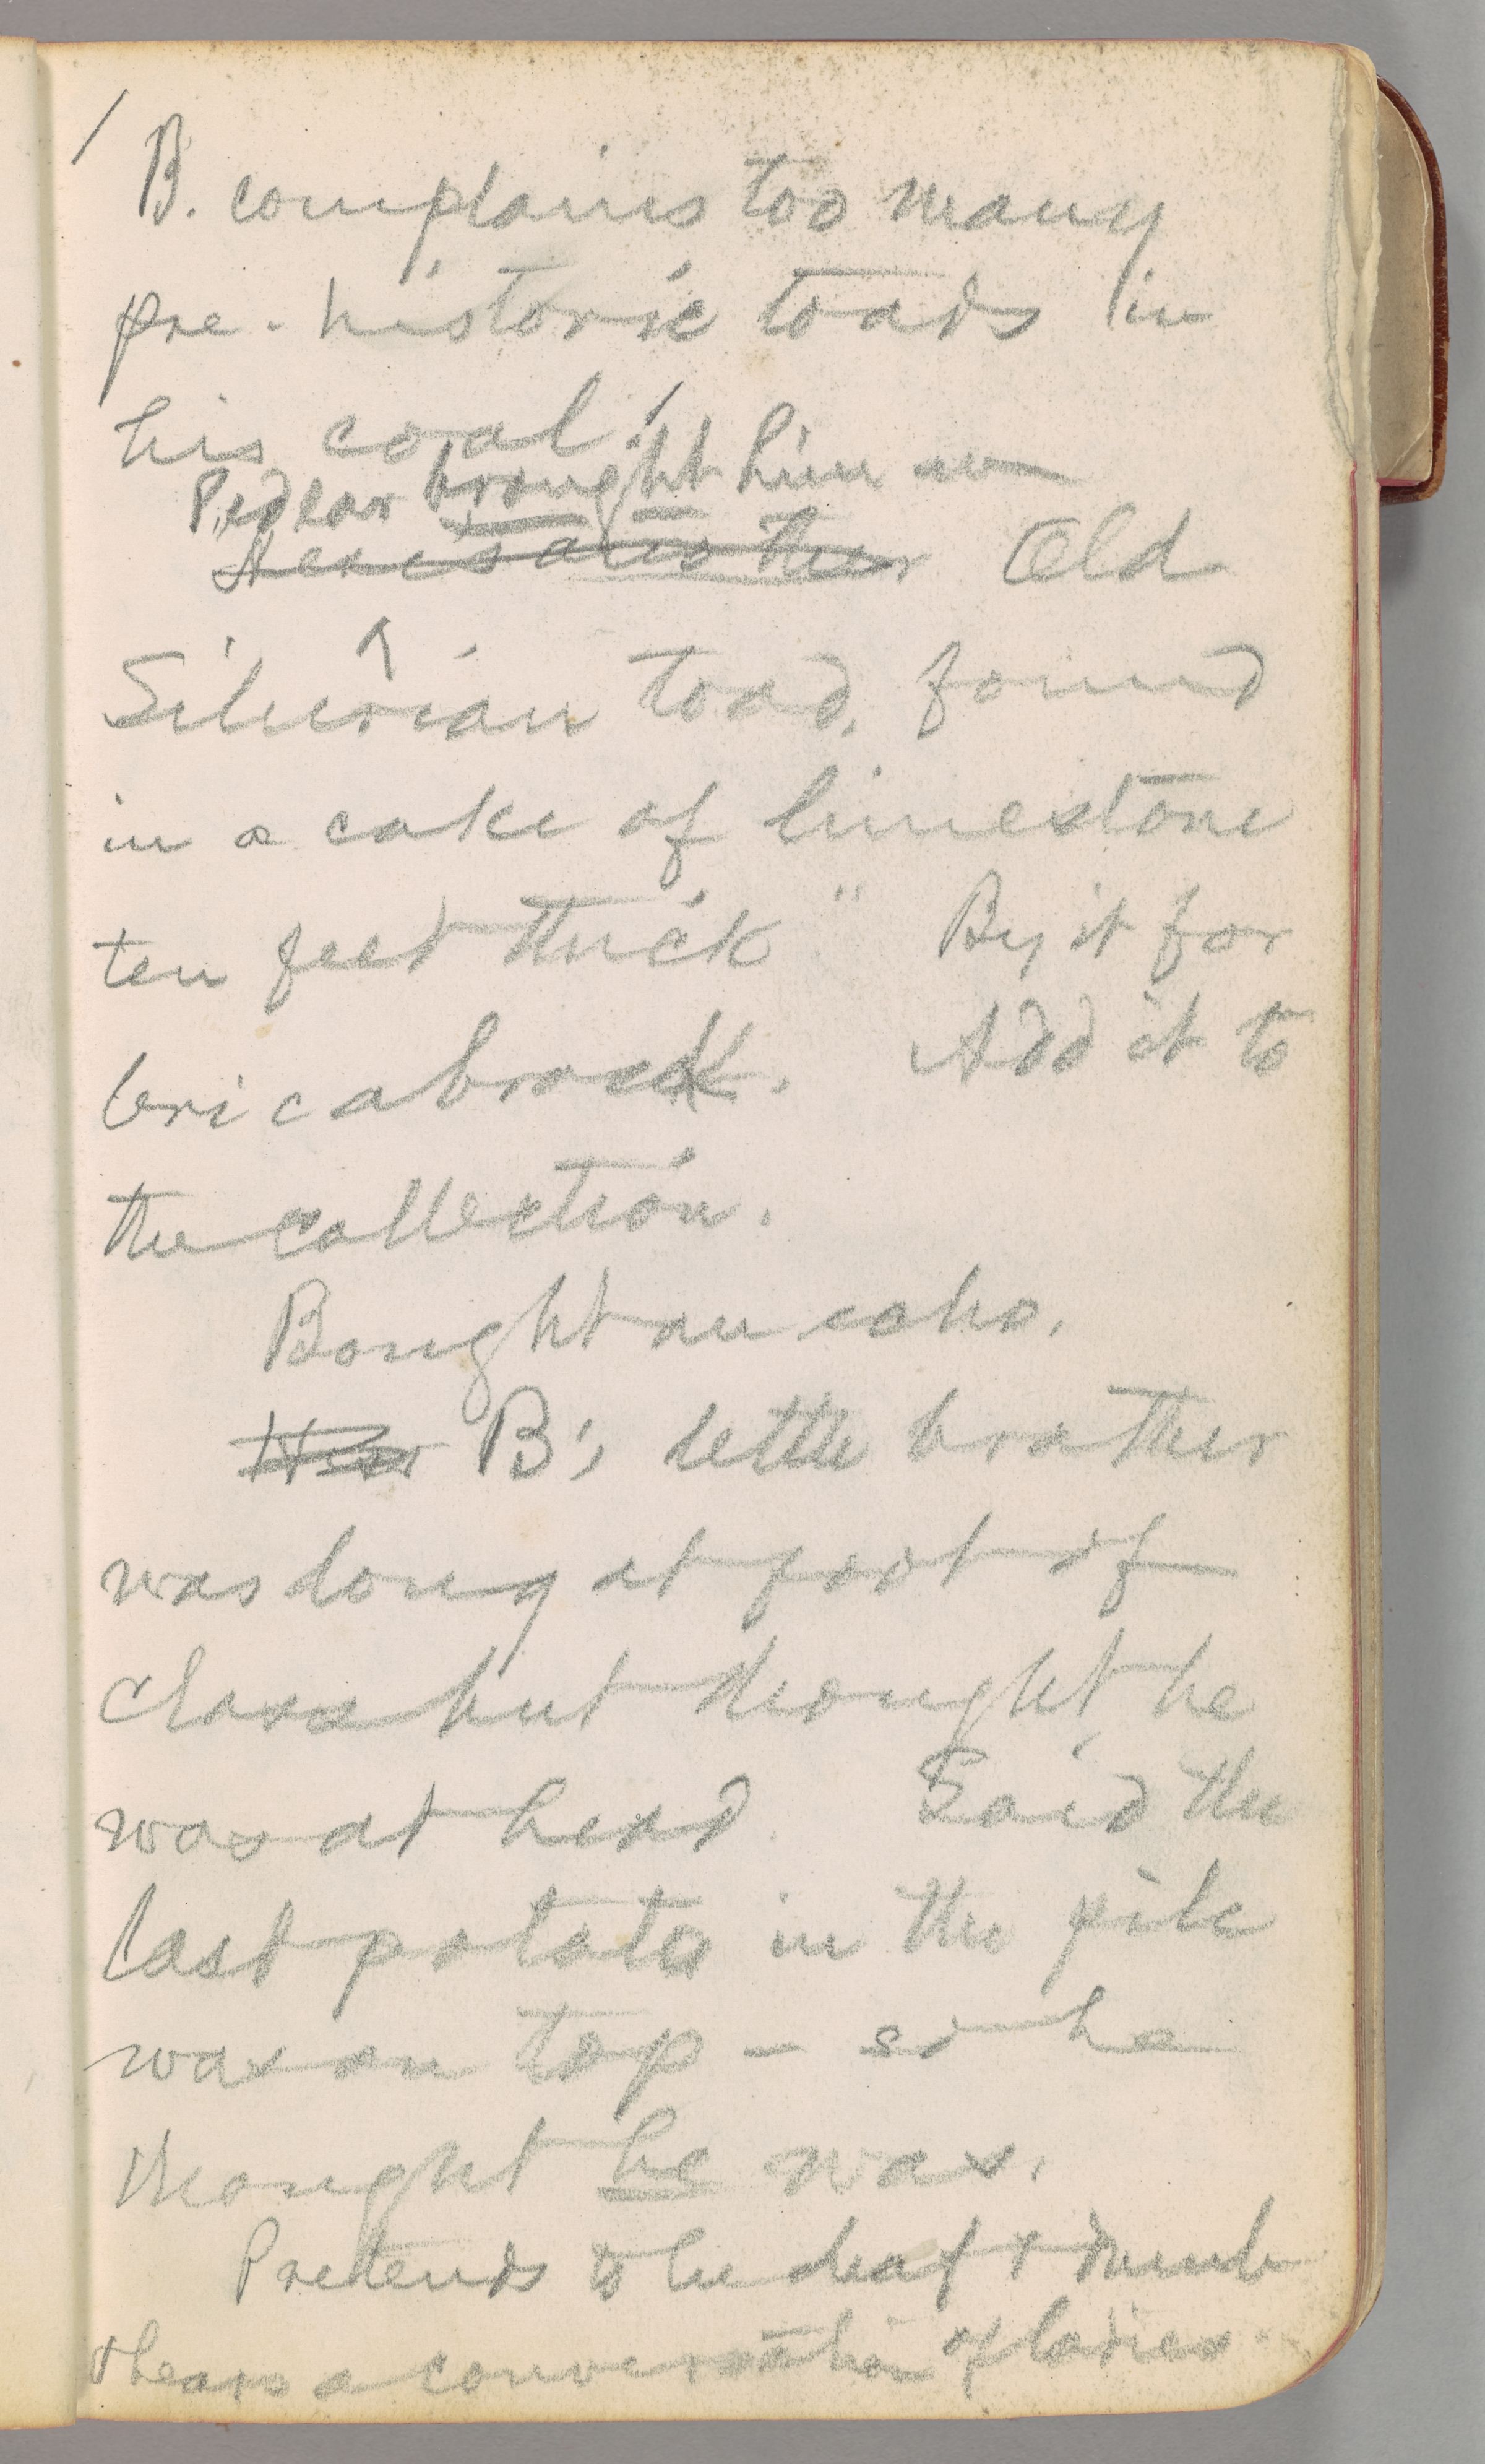 B. complains too many
pre-historic toads in
his coal!
Pedlar brought him an
Old
Silurian toad, found
in a cake of limestone
ten feet thick" By it for
bricabrack. Add it to
the collection.
Bought an echo.
B's little brother
was long at foot of
class but thought he
was at head. Said the
last potato in the pile
was on top – so he
thought he was.
Pretends to be deaf & dumb
& hears a conversation of ladies